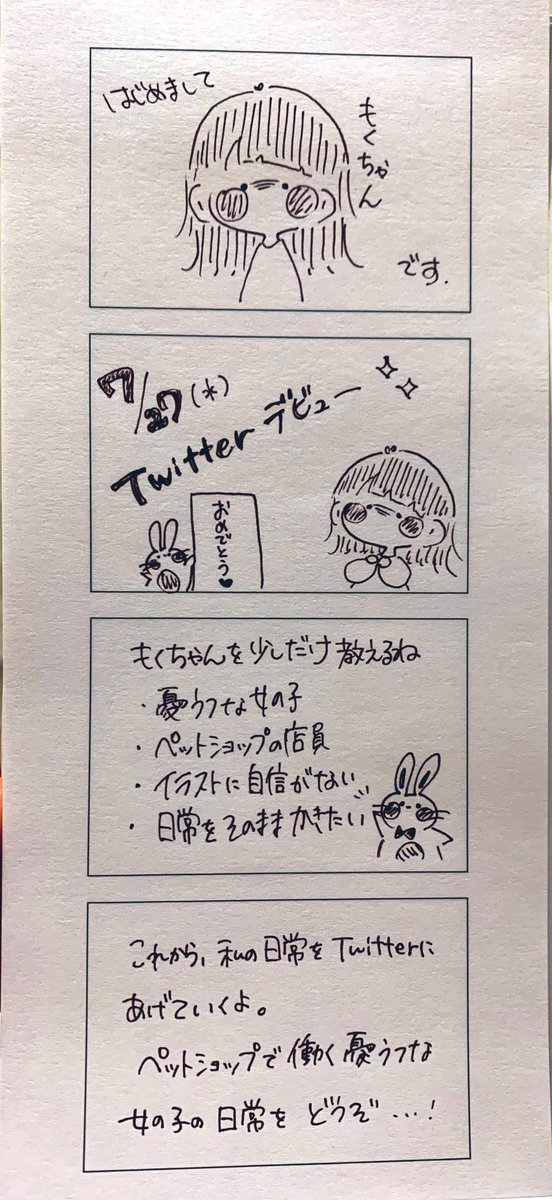 はじめまして
もくちゃん
です.
7/27(*)
Twitterデビュー
おめでとう♥
もくちゃんを少しだけ教えるね
・憂ウツな女の子
・ペットショップの店員
・イラストに自信がない
・日常をそのままかきたい
これから、私の日常をTwitterに
あげていくよ。
ペットショップで働く憂うツな
女の子の日常をどうぞ…!